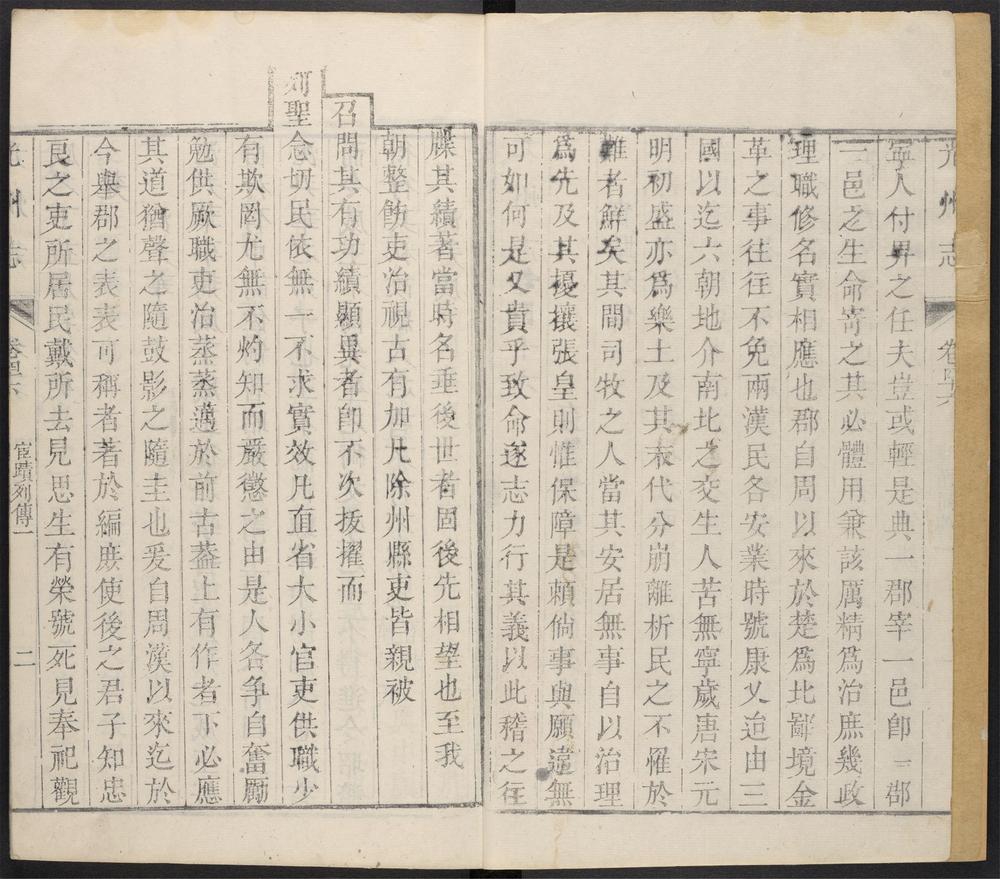 光州志 卷四十六
寧人付畀之任夫豈或輕是典一郡宰一邑卽一郡
一邑之生命寄之其必體用兼該厲精爲治庶幾政
理職修名實相應也郡自周以來於楚爲北鄙境金
革之事往往不免兩漢民各安業時號康乂迨由三
國以迄六朝地介南北之交生人苦無寧歲唐宋元
明初盛亦爲樂土及其末代分崩離析民之不罹於
難者鮮矣其間司牧之人當其安居無事自以治理
爲先及其擾攘張皇則惟保障是賴倘事與願違無
可如何是又貴乎致命遂志力行其義以此稽之往
牒其績著當時名垂後世者固後先相望也至我
朝整飭吏治視古有加凡除州縣吏皆親被
召問其有功績顯異者卽不次拔擢而
列聖念切民依無一不求實效凡直省大小官吏供職少
有欺罔尤無不灼知而嚴懲之由是人各爭自奮勵
勉供厥職吏治蒸蒸邁於前古葢上有作者下必應
其道猶聲之隨鼓影之隨圭也爰自周漢以來迄於
今舉郡之表表可稱者著於編庶使後之君子知忠
良之吏所居民戴所去見思生有榮號死見奉祀觀
光州志 卷四十六 宦蹟列傳一 二